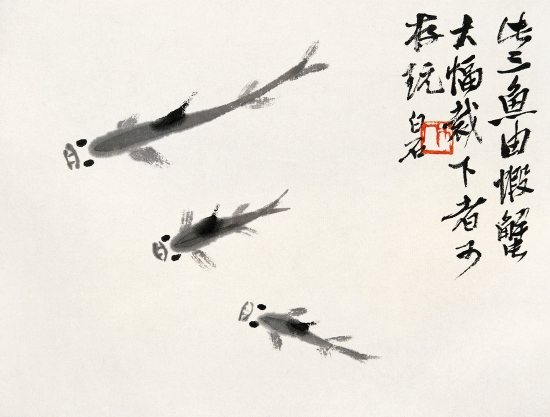 此三鱼由蝦蟹
大幅裁下者可
存玩 白石